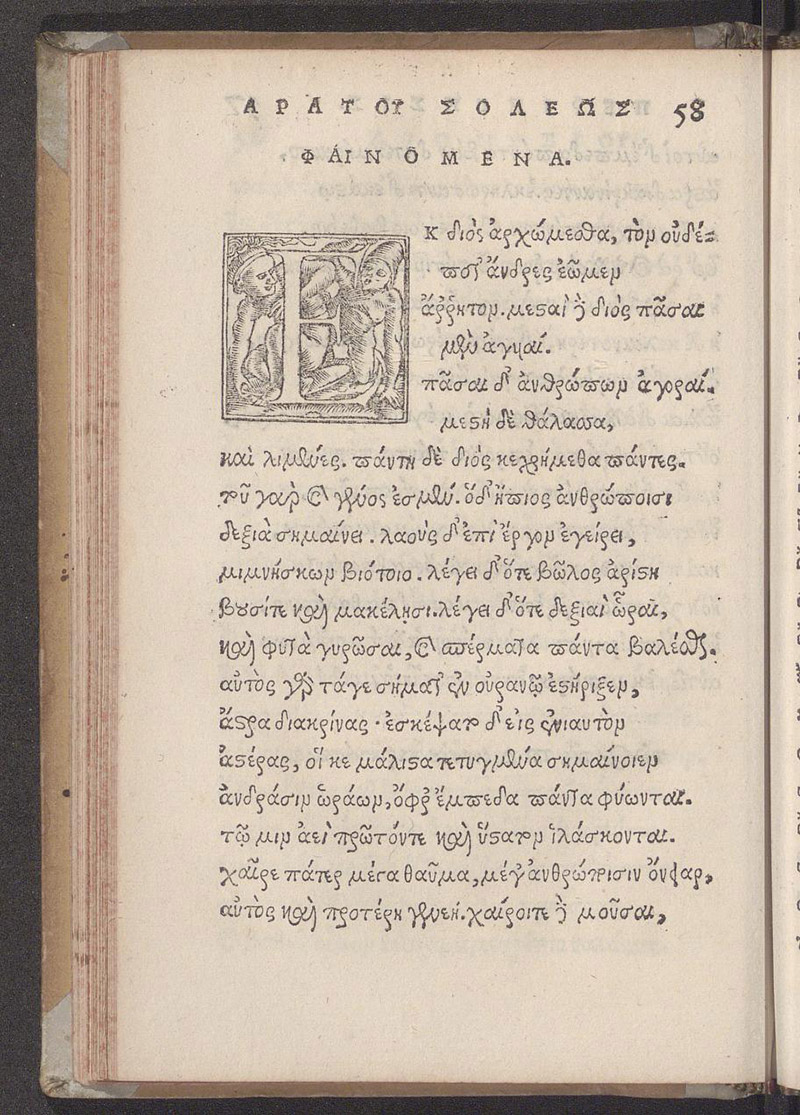 ΑΡΑΤΟΥ ΣΟΛΕΩΣ 58
ΦΑΙΝΌΜΕΝΑ.
Ἐκ διὸς ἀρχώμεσθα, τὸν οὐδέ-
ποτ᾽ ἄνδρες ἐῶμεν
ἄῤῥητον. μεσταὶ δὲ διὸς πᾶσαι
μὲν ἀγυιαί.
πᾶσαι δ᾽ ἀνθρώπων ἀγοραί.
μεστὴ δὲ θάλασσα,
καὶ λιμένες. πάντη δὲ διὸς κεχρήμεθα πάντες.
τοῦ γὰρ καὶ γένος ἐσμέν. ὅδ᾽ ἤπιος ἀνθρώποισι
δεξιὰ σημαίνει. λαοὺς δ᾽ ἐπὶ ἔργον ἐγείρει,
μιμνήσκων βιότοιο. λέγει δ᾽ ὅτε βῶλος ἀρίστη
βουσίτε καὶ μακέλησι. λέγει δ᾽ ὅτε δεξιαὶ ὧραι,
καὶ φυτὰ γυρῶσαι, καὶ σπέρματα πάντα βαλέσθαι.
αὐτὸς γὰρ τάγε σήματ᾽ ἐν οὐρανῷ ἐστήριξεν,
ἄστρα διακρίνας· ἐσκέψατο δ᾽ εἰς ἐνιαυτὸν
ἀστέρας, οἵ κε μάλιστα τετυγμένα σημαίνοιεν
ἀνδράσιν ὡράων, ὄφρ᾽ ἔμπεδα πάντα φύωνται.
τῷ μιν ἀεὶ πρῶτόντε καὶ ὕστατον ἱλάσκονται.
χαῖρε πάτερ μέγα θαῦμα, μέγ᾽ ἀνθρώποισιν ὄνειαρ,
αὐτὸς καὶ προτέρη γενεή. χαίροιτε δὲ μοῦσαι,